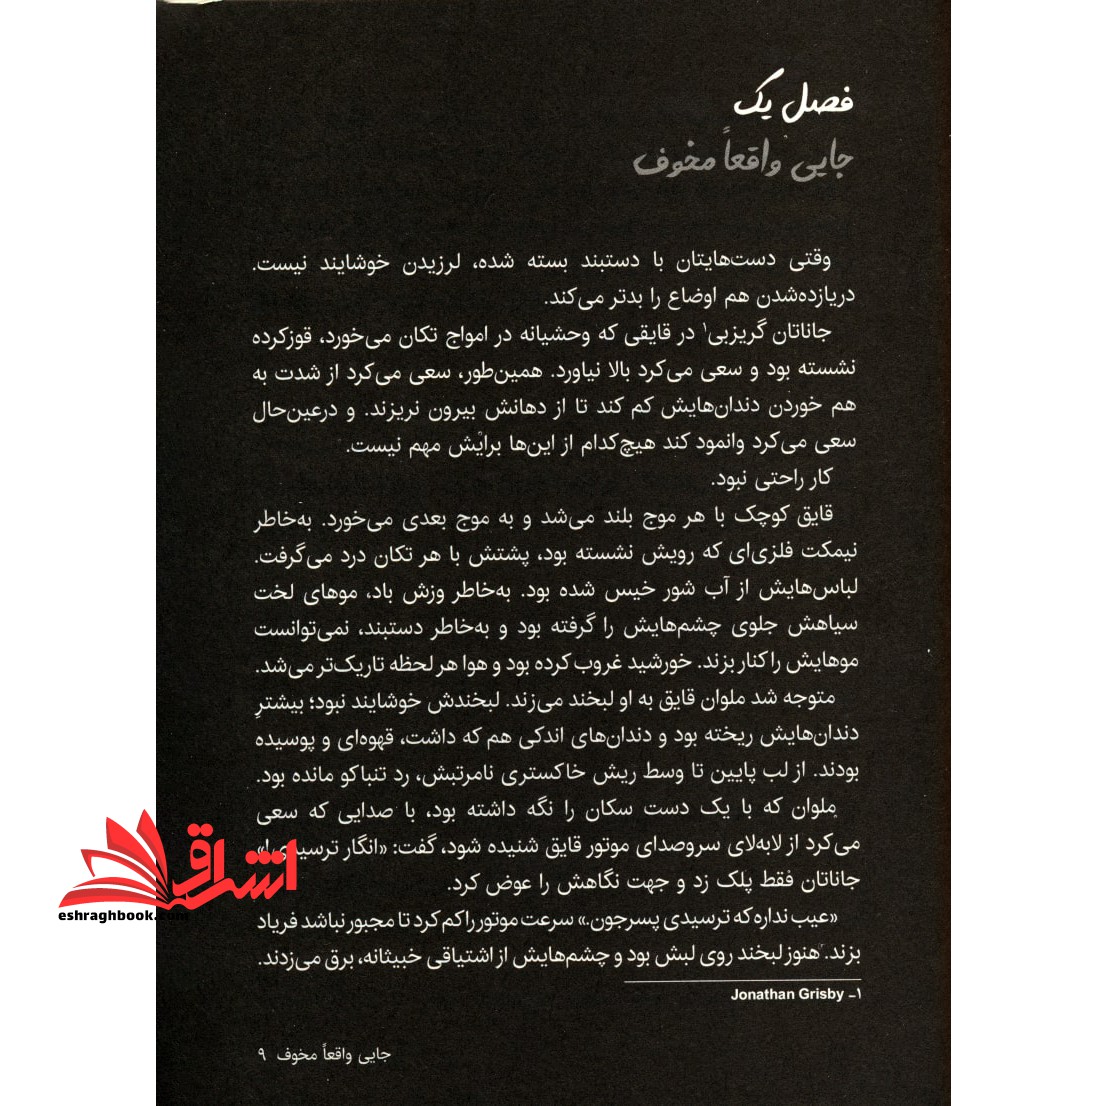 فصل یک
جایی واقعاً مخوف
وقتی دست‌هایتان با دستبند بسته شده، لرزیدن خوشایند نیست.
دریازده‌شدن هم اوضاع را بدتر می‌کند.
جاناتان گریزبی۱ در قایقی که وحشیانه در امواج تکان می‌خورد، قوزکرده
نشسته بود و سعی می‌کرد بالا نیاورد. همین‌طور، سعی می‌کرد از شدت به
هم خوردن دندان‌هایش کم کند تا از دهانش بیرون نریزند. و درعین‌حال
سعی می‌کرد وانمود کند هیچ‌کدام از این‌ها برایش مهم نیست.
کار راحتی نبود.
قایق کوچک با هر موج بلند می‌شد و به موج بعدی می‌خورد. به‌خاطر
نیمکت فلزی‌ای که رویش نشسته بود، پشتش با هر تکان درد می‌گرفت.
لباس‌هایش از آب شور خیس شده بود. به‌خاطر وزش باد، موهای لخت
سیاهش جلوی چشم‌هایش را گرفته بود و به‌خاطر دستبند، نمی‌توانست
موهایش را کنار بزند. خورشید غروب کرده بود و هوا هر لحظه تاریک‌تر می‌شد.
متوجه شد ملوان قایق به او لبخند می‌زند. لبخندش خوشایند نبود؛ بیشترِ
دندان‌هایش ریخته بود و دندان‌های اندکی هم که داشت، قهوه‌ای و پوسیده
بودند. از لب پایین تا وسط ریش خاکستری نامرتبش، رد تنباکو مانده بود.
ملوان که با یک دست سکان را نگه داشته بود، با صدایی که سعی
می‌کرد از لابه‌لای سروصدای موتور قایق شنیده شود، گفت: «انگار ترسیدی!»
جاناتان فقط پلک زد و جهت نگاهش را عوض کرد.
«عیب نداره که ترسیدی پسرجون.» سرعت موتور را کم کرد تا مجبور نباشد فریاد
بزند. هنوز لبخند روی لبش بود و چشم‌هایش از اشتیاقی خبیثانه، برق می‌زدند.
۱- Jonathan Grisby
جایی واقعاً مخوف ۹
اشراق
eshraghbook.com